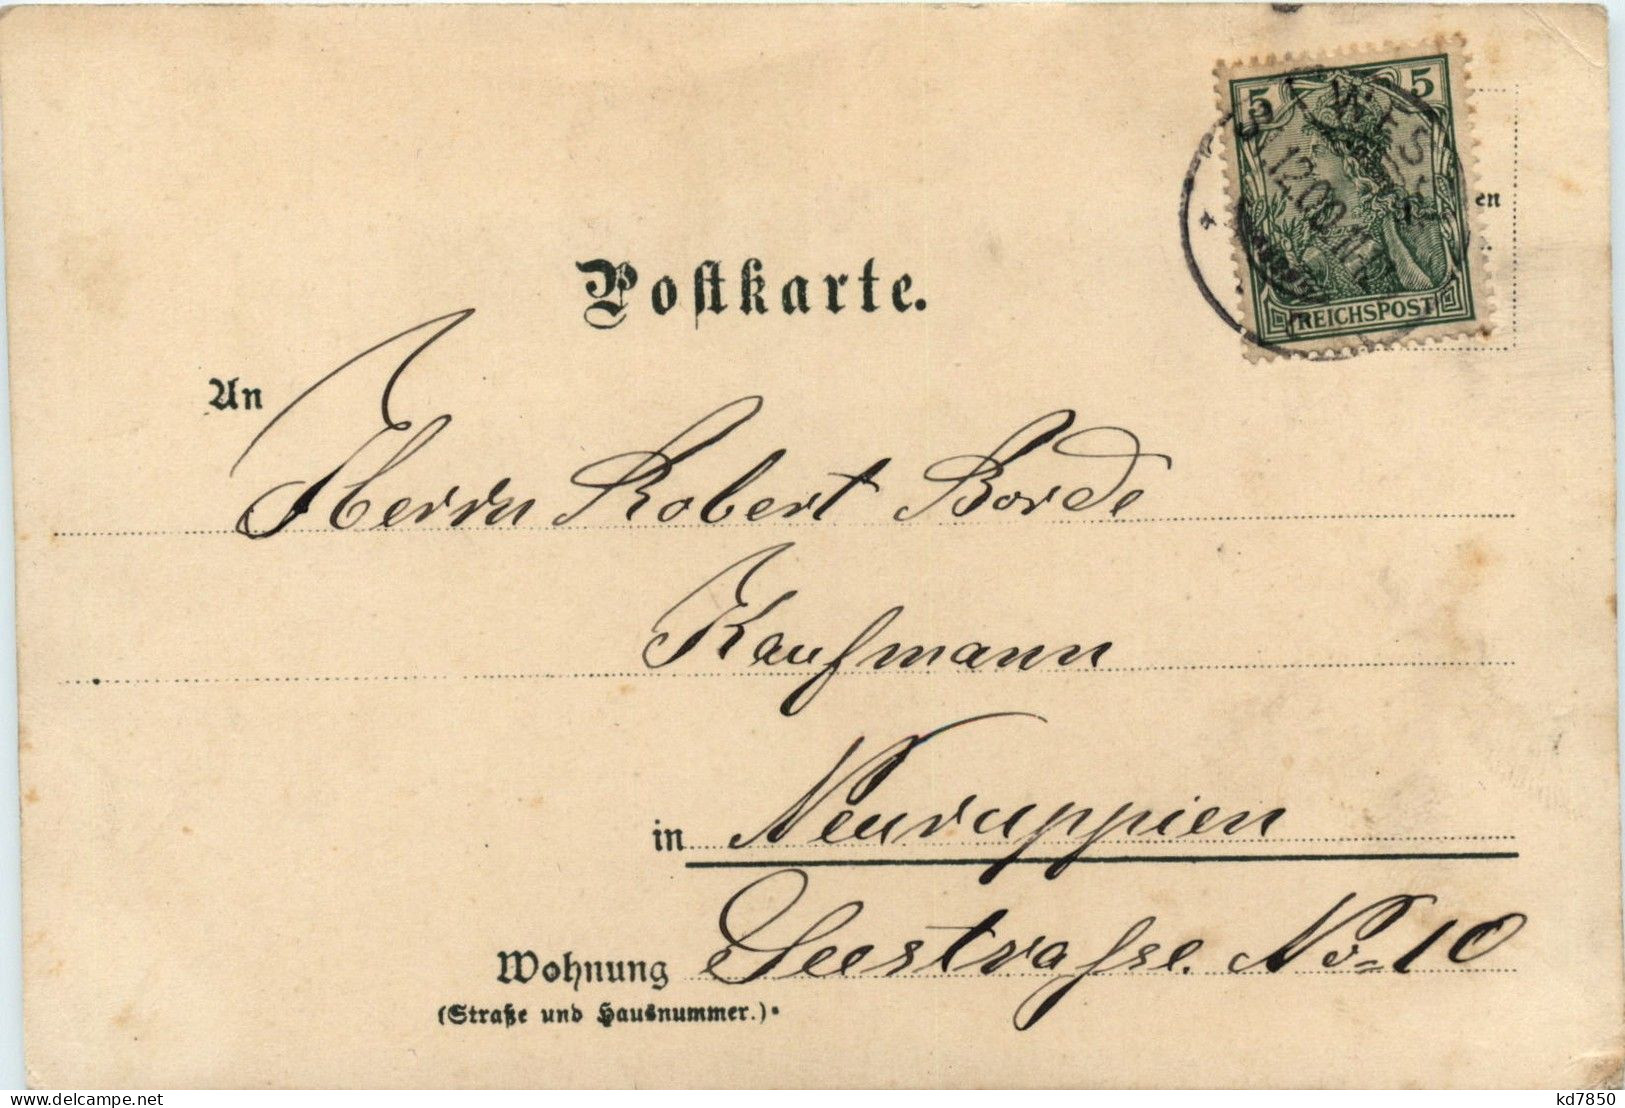 5 5
WEST
12.00.11
REICHSPOST
en
Postkarte.
An
Herrn Robert Borde
Kaufmann
in Neuruppien
Wohnung Seestrasse. No 10
(Straße und Hausnummer.)
kd7850